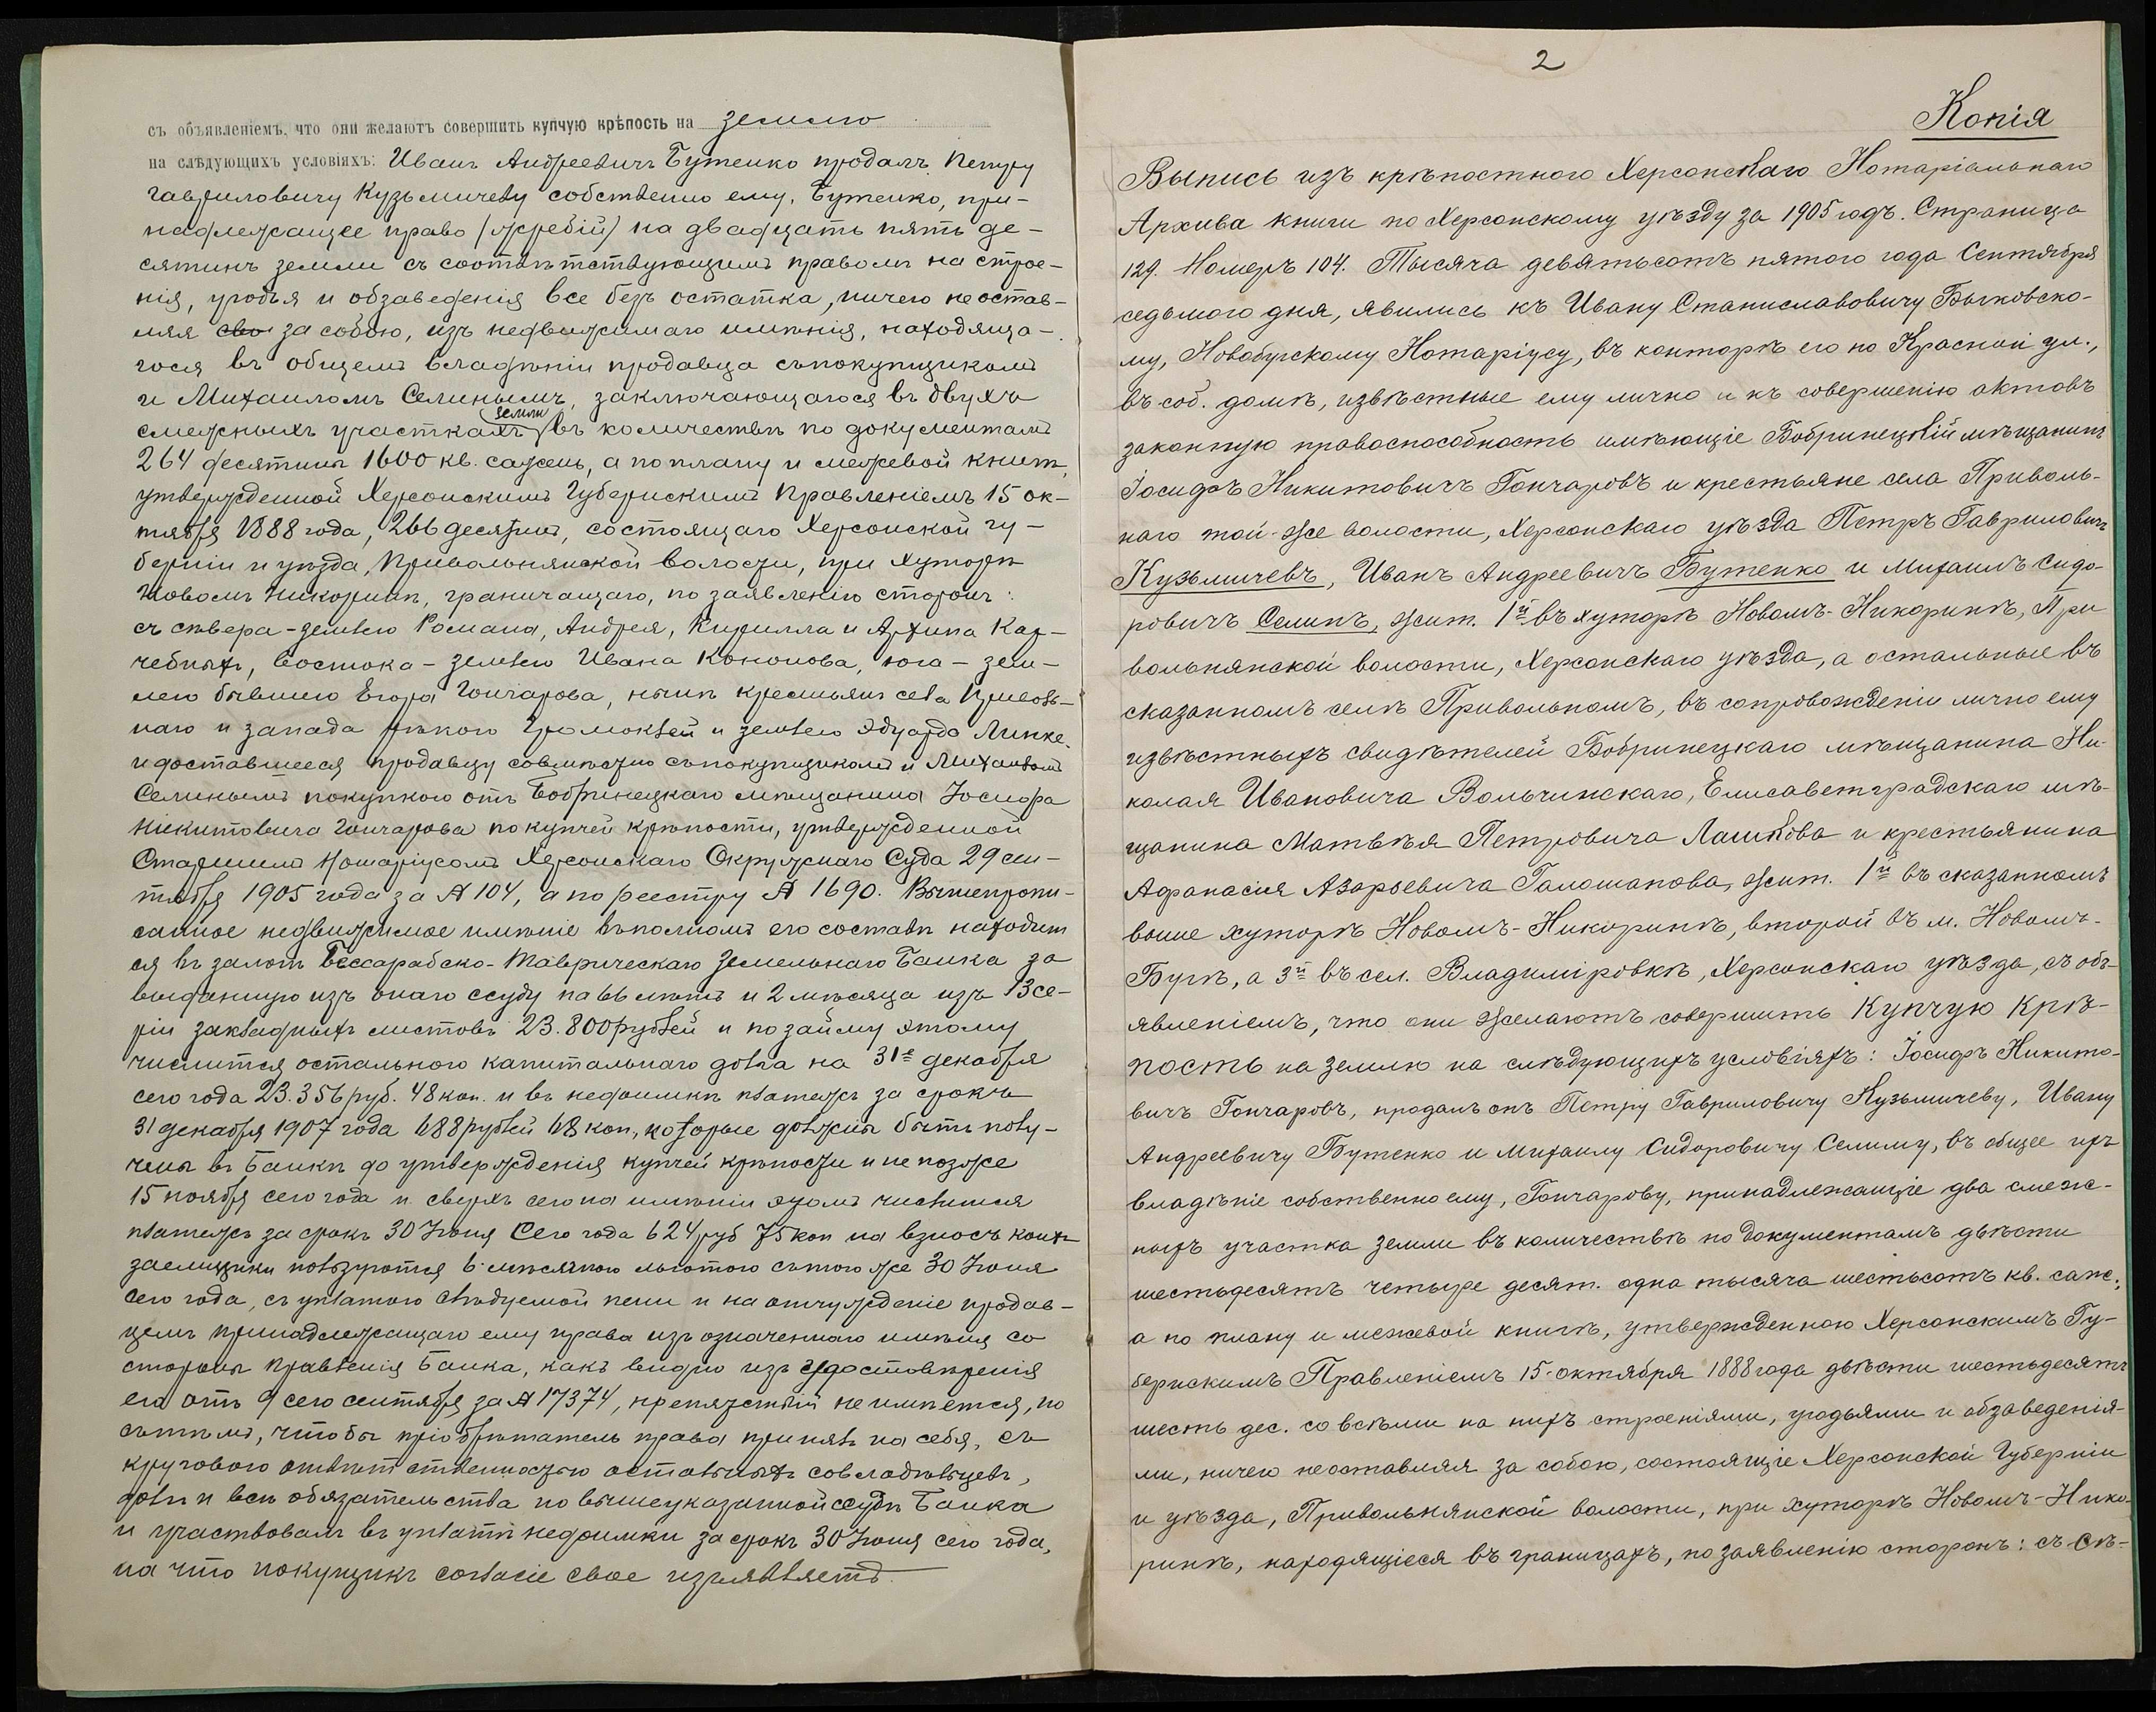 съ объявленіемъ, что они желаютъ совершить купчую крѣпость на землю
на слѣдующихъ условіяхъ: Иванъ Андреевичъ Бутенко продалъ Петру
Гавриловичу Кузьмичеву собственно ему, Бутенко, при-
надлежащее право (жребій) на двадцать пять де-
сятинъ земли съ соотвѣтствующимъ правомъ на строе-
нія, угодья и обзаведенія все безъ остатка, ничего не остав-
ляя сво за собою, изъ недвижимаго имѣнія, находяща-
гося въ общемъ владѣніи продавца съ покупщикомъ
и Михаиломъ Селинымъ, заключающагося въ двухъ
смежныхъ участкахъ земли въ количествѣ по документамъ
264 десятины 1600 кв. сажень, а по плану и межевой книгѣ,
утвержденной Херсонскимъ Губернскимъ Правленіемъ 15 ок-
тября 1888 года, 266 десятинъ, состоящаго Херсонской гу-
берніи и уѣзда, Привольнянской волости, при хуторѣ
Новомъ Никоринѣ, граничащаго, по заявленію сторонъ:
съ сѣвера - землею Романа, Андрея, Кирилла и Архипа Кар-
чебныхъ, востока - землею Ивана Кононова, юга - зем-
лею бывшею Егора Гончарова, нынѣ крестьянъ села Приволь-
наго и запада рѣкою Громоклеей и землею Эдуарда Линке,
и доставшееся продавцу совмѣстно съ покупщикомъ и Михаиломъ
Селинымъ покупкою отъ Бобринецкаго мѣщанина Іосифа
Никитовича Гончарова по купчей крѣпости, утвержденной
Старшимъ Нотаріусомъ Херсонскаго Окружнаго Суда 29 сен-
тября 1905 года за № 104, а по реестру № 1690. Вышепропи-
санное недвижимое имѣніе въ полномъ его составѣ находит
ся въ залогѣ Бессарабско-Таврическаго Земельнаго Банка за
выданную изъ онаго ссуду на 66 лѣтъ и 2 мѣсяца изъ 13 се-
ріи закладныхъ листовъ 23.800 рублей и по займу этому
числится остального капитальнаго долга на 31е декабря
сего года 23.356 руб. 48 коп. и въ недоимкѣ платежъ за срокъ
31 декабря 1907 года 688 рублей 68 коп., которые должны быть полу-
чены въ Банкѣ до утвержденія купчей крѣпости и не позже
15 ноября сего года и сверхъ сего на имѣніи этомъ числится
платежъ за срокъ 30 Іюня Сего года 624 руб 75 коп на взносъ коихъ
заемщики пользуются 6-мѣсячною льготою съ того же 30 Іюня
сего года, съ уплатою слѣдуемой пени и на отчужденіе продав-
цемъ принадлежащаго ему права изъ означеннаго имѣнія со
стороны Правленія Банка, какъ видно изъ удостовѣренія
его отъ 9 сего сентября за № 17374, препятствій не имѣется, но
съ тѣмъ, чтобы пріобрѣтатель права принялъ на себя, съ
круговою отвѣтственностью остальныхъ совладѣльцевъ,
долгъ и всѣ обязательства по вышеуказанной ссудѣ Банка
и участвовалъ въ уплатѣ недоимки за срокъ 30 Іюня сего года,
на что покупщикъ согласіе свое изъявляетъ.
2
Копія
Выпись изъ крѣпостного Херсонскаго Нотаріальнаго
Архива книги по Херсонскому уѣзду за 1905 годъ. Страница
129. Номеръ 104. Тысяча девятьсотъ пятого года Сентября
седьмого дня, явились къ Ивану Станиславовичу Бычковско-
му, Новобугскому Нотаріусу, въ конторѣ его по Красной ул.,
въ соб. домѣ, извѣстные ему лично и къ совершенію актовъ
законную правоспособность имѣющіе Бобринецкій мѣщанинъ
Іосифъ Никитовичъ Гончаровъ и крестьяне села Приволь-
наго той-же волости, Херсонскаго уѣзда Петръ Гавриловичъ
Кузьмичевъ, Иванъ Андреевичъ Бутенко и Михаилъ Сидо-
ровичъ Селинъ, жит. 1й въ хуторѣ Новомъ-Никоринѣ, При
вольнянской волости, Херсонскаго уѣзда, а остальные въ
сказанномъ селѣ Привольномъ, въ сопровожденіи лично ему
извѣстныхъ свидѣтелей Бобринецкаго мѣщанина Ни-
колая Ивановича Вольчинскаго, Елисаветградскаго мѣ-
щанина Матвѣя Петровича Лашкова и крестьянина
Афанасія Азарьевича Галошапова, жит. 1й въ сказанномъ
выше хуторѣ Новомъ-Никоринѣ, второй въ м. Новомъ-
Бугѣ, а 3й въ сел. Владиміровкѣ, Херсонскаго уѣзда, съ объ-
явленіемъ, что они желаютъ совершить Купчую Крѣ-
пость на землю на слѣдующихъ условіяхъ: Іосифъ Никито-
вичъ Гончаровъ, продалъ онъ Петру Гавриловичу Кузьмичеву, Ивану
Андреевичу Бутенко и Михаилу Сидоровичу Селину, въ общее ихъ
владѣніе собственно ему, Гончарову, принадлежащіе два смеж-
ныхъ участка земли въ количествѣ по документамъ двѣсти
шестьдесятъ четыре десят. одна тысяча шестьсотъ кв. саж.,
а по плану и межевой книгѣ, утвержденною Херсонскимъ Гу-
бернскимъ Правленіемъ 15-октября 1888 года двѣсти шестьдесятъ
шесть дес. со всѣми на нихъ строеніями, угодьями и обзаведенія-
ми, ничего не оставляя за собою, состоящіе Херсонской Губерніи
и уѣзда, Привольнянской волости, при хуторѣ Новомъ-Нико-
ринѣ, находящіеся въ границахъ, по заявленію сторонъ: съ сѣ-